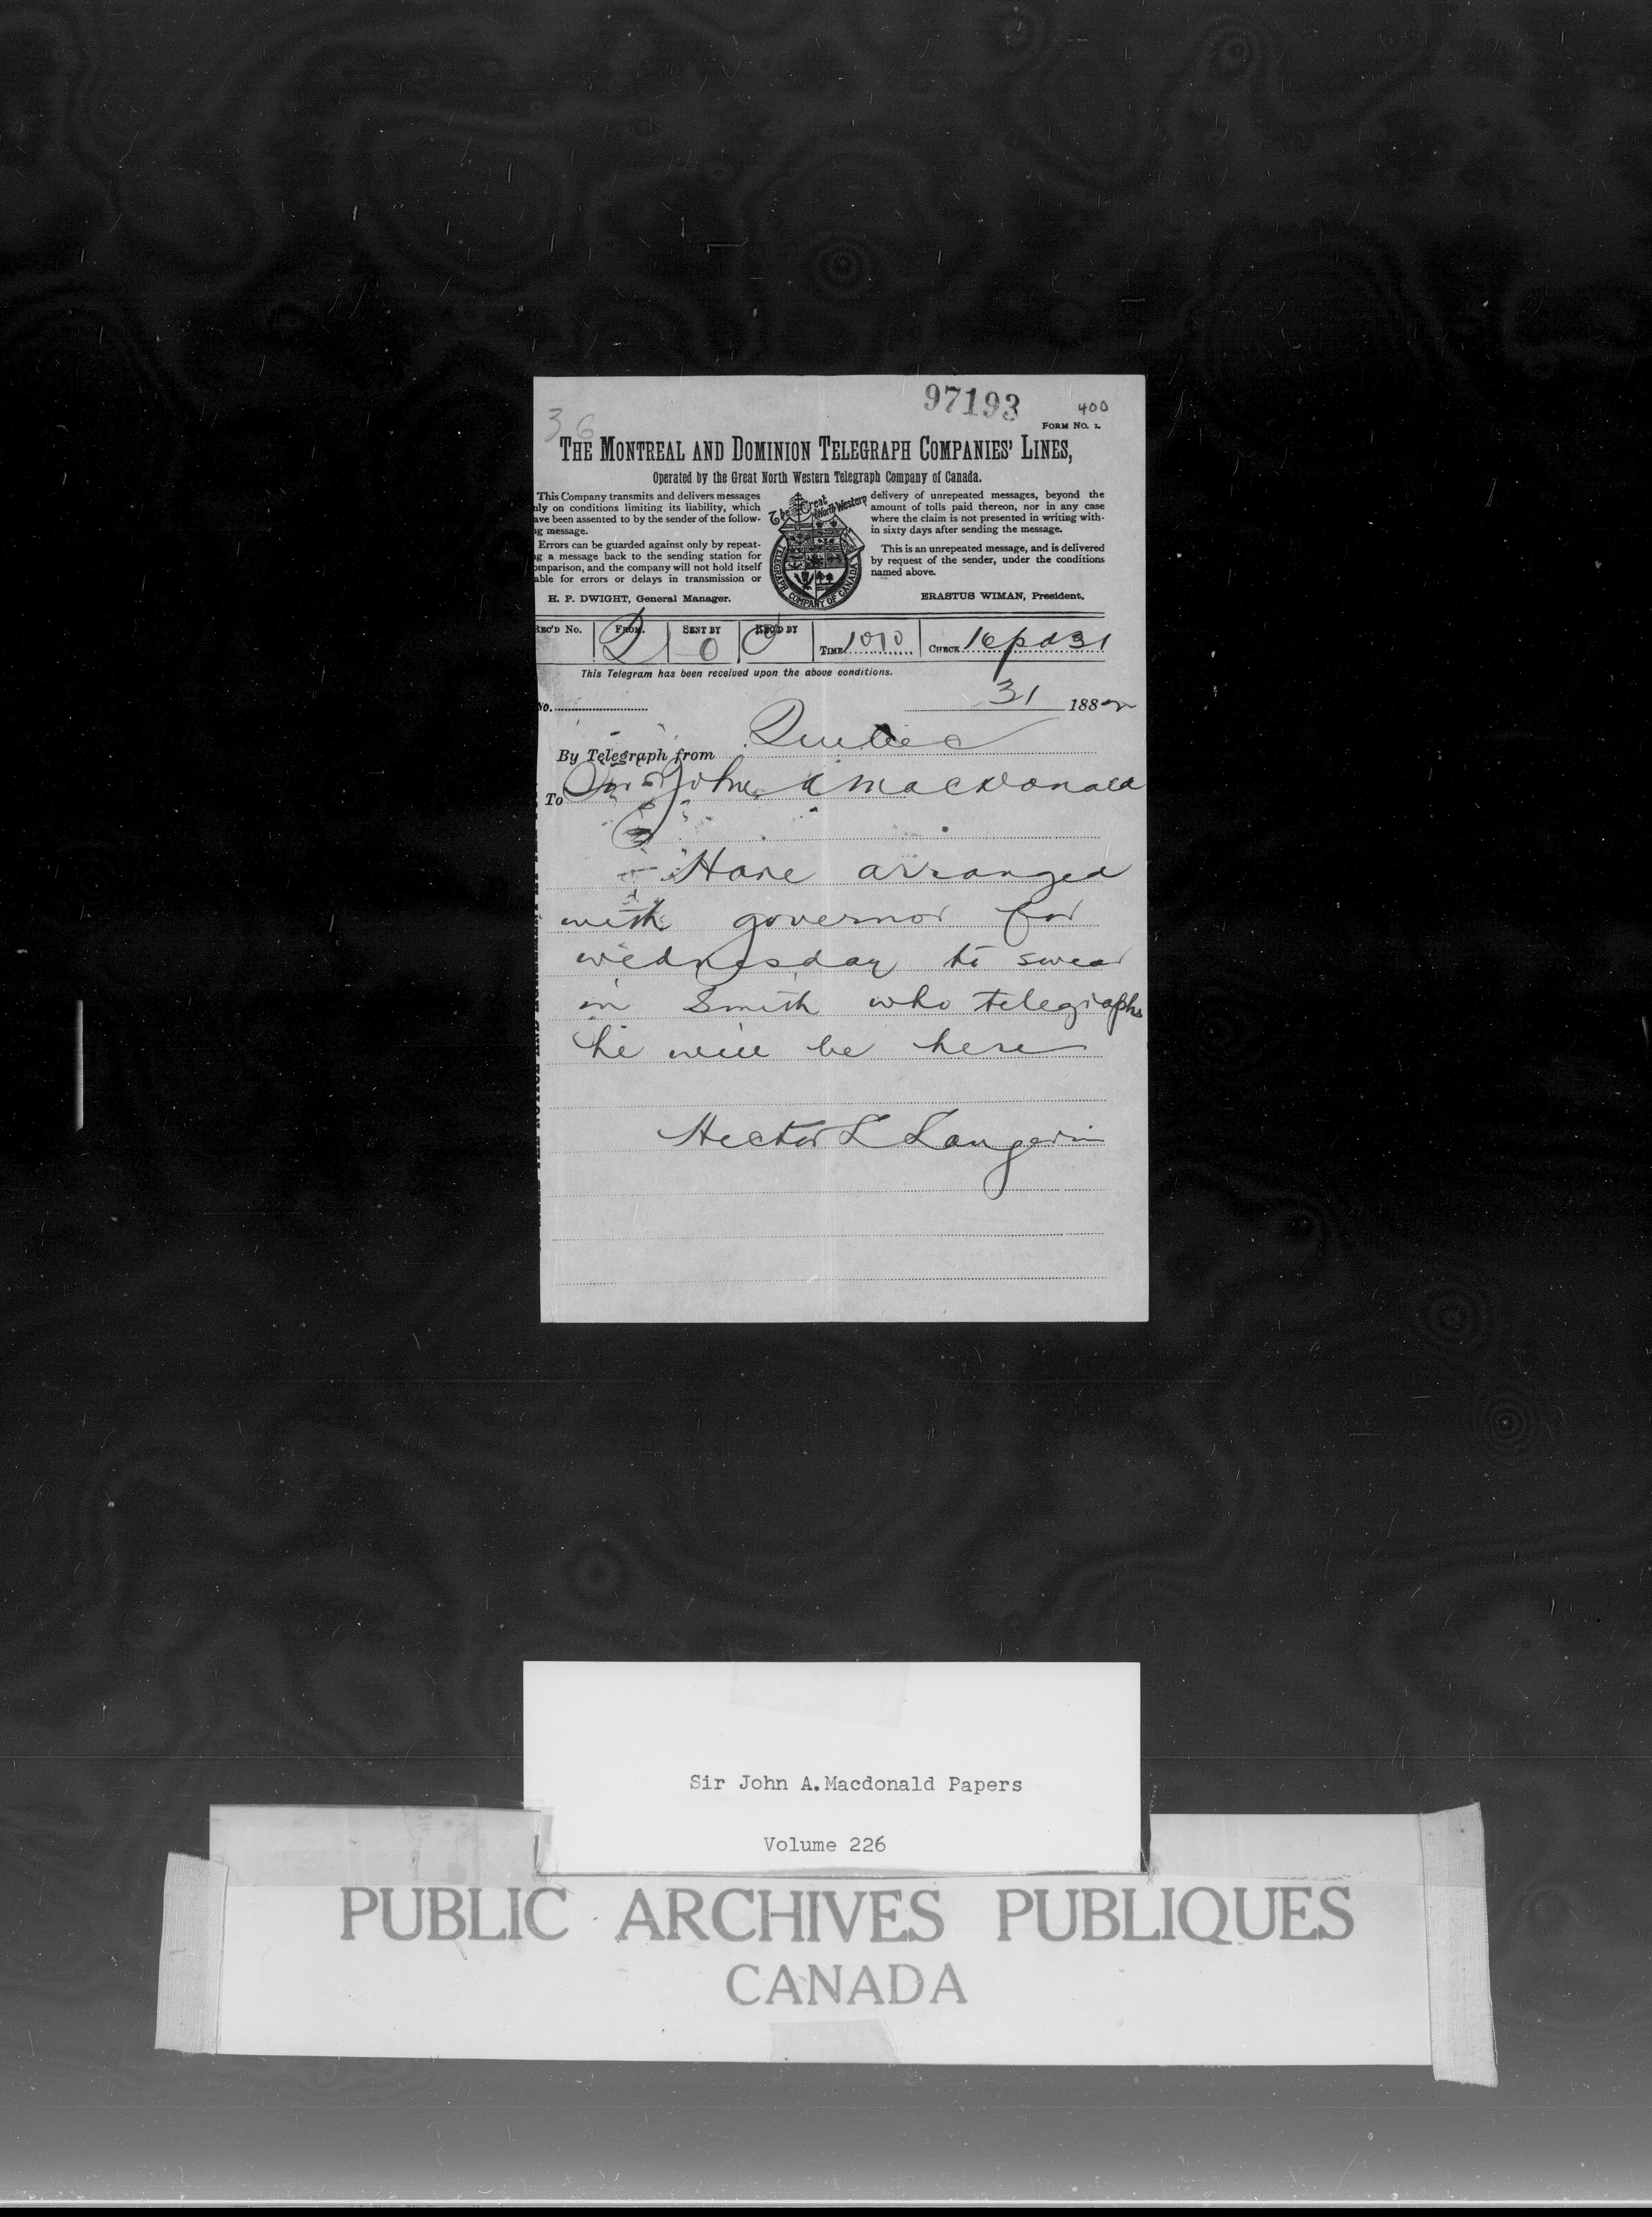 97193
36
400
FORM NO. 2
THE MONTREAL AND DOMINION TELEGRAPH COMPANIES' LINES,
Operated by the Great North Western Telegraph Company of Canada.
This Company transmits and delivers messages
nly on conditions limiting its liability, which
ave been assented to by the sender of the follow-
ng message.
Errors can be guarded against only by repeat-
ng a message back to the sending station for
omparison, and the company will not hold itself
able for errors or delays in transmission or
H. P. DWIGHT, General Manager.
The Great North Western
TELEGRAPH COMPANY OF CANADA
delivery of unrepeated messages, beyond the
amount of tolls paid thereon, nor in any case
where the claim is not presented in writing with-
in sixty days after sending the message.
This is an unrepeated message, and is delivered
by request of the sender, under the conditions
named above.
ERASTUS WIMAN, President.
REC'D No. FROM. SENT BY REC'D BY TIME 1010 CHECK 16 pd 31
This Telegram has been received upon the above conditions.
No. 31 1882
By Telegraph from Quebec
To Sir John A MacDonald
Have arranged
with governor for
wednesday to swear
in Smith who telegraphs
he will be here
Hector L Langevin
Sir John A. Macdonald Papers
Volume 226
PUBLIC ARCHIVES PUBLIQUES
CANADA